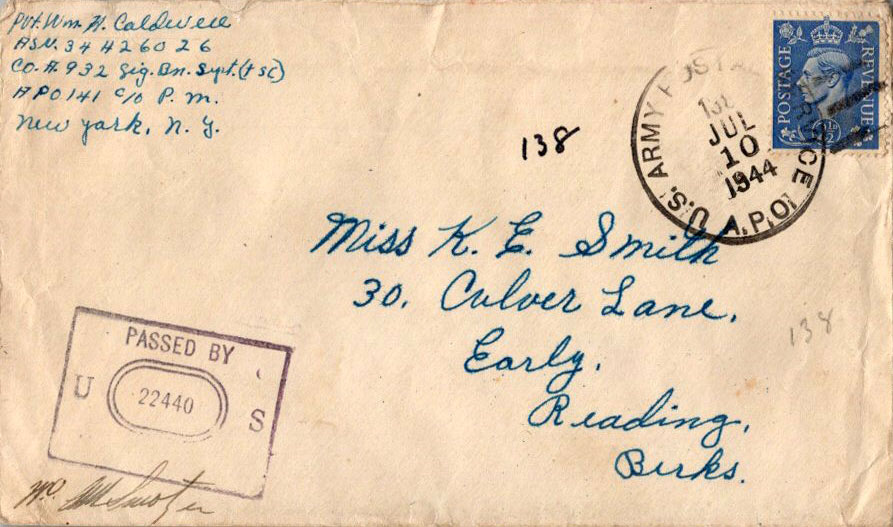 Pvt. Wm H. Caldwell
ASN. 34426026
Co. A. 932 Sig. Bn. Sept. (TSC)
APO 141 c/o P. M.
New York, N. Y.
138
POSTAGE
REVENUE
U.S. ARMY POSTAL SERVICE
JUL
10
1944
A.P.O.
Miss K. E. Smith
30. Culver Lane,
Early.
Reading,
Berks.
138
PASSED BY
U 22440 S